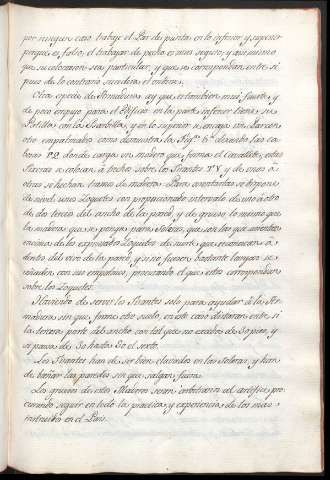 por ningun caso trabaje el Par de punta en lo inferior y superior
porque es falso; el trabajar de pecho es mas seguro; y asi mismo
que su colocacion sea particular, y que se correspondan entre si
pues de lo contrario sucediera el
Otra especie de Armaduras ay que es tambien mui fuerte, y
de poco empujo para el Edificio en la parte inferior tiene su
Patilla con la Barbilla, y en lo superior se encaja un Par con
otro empatillados como demuestra la Fig.ª 6.ª dexando las ca
bezas P2 donde carga un madero que forma el Cavallete; estas
Tixeras se colocan à trecho sobre los Tirantes X Y y de unos à
otros se hechan tramos de madera. Para sentarlas se dispone
de nivel unos Zoquetes con proporcionado intervalo de uno à otro
de dos tercios del ancho de la pared, y de grueso lo mismo que
la madera que se pongra para Soleras, que son las que sientan
encima de los expresados Zoquetes de suerte que se enrrasen à
dentro del vivo de la pared; y si no fuesen bastante largas se
añaden con sus empalmes, procurando el que estos correspondan
sobre los Zoquetes.
Haviendo de servir los Tirantes solo para ayudar à la Ar
madura sin que forme otro suelo, en este caso distaran entre si
la tercera parte del ancho con tal que no exceda de 30 pies, y
si pasa de 30 hasta 50 el sexto.
Los Tirantes han de ser bien clavados en las Soleras, y han
de bañar las paredes sin que salgan fuera.
Los gruesos de estos Maderos seran arbitrarios al artifice, pro
curando seguir en todo la practica, y experiencia de los mas
instruidos en el Pais.